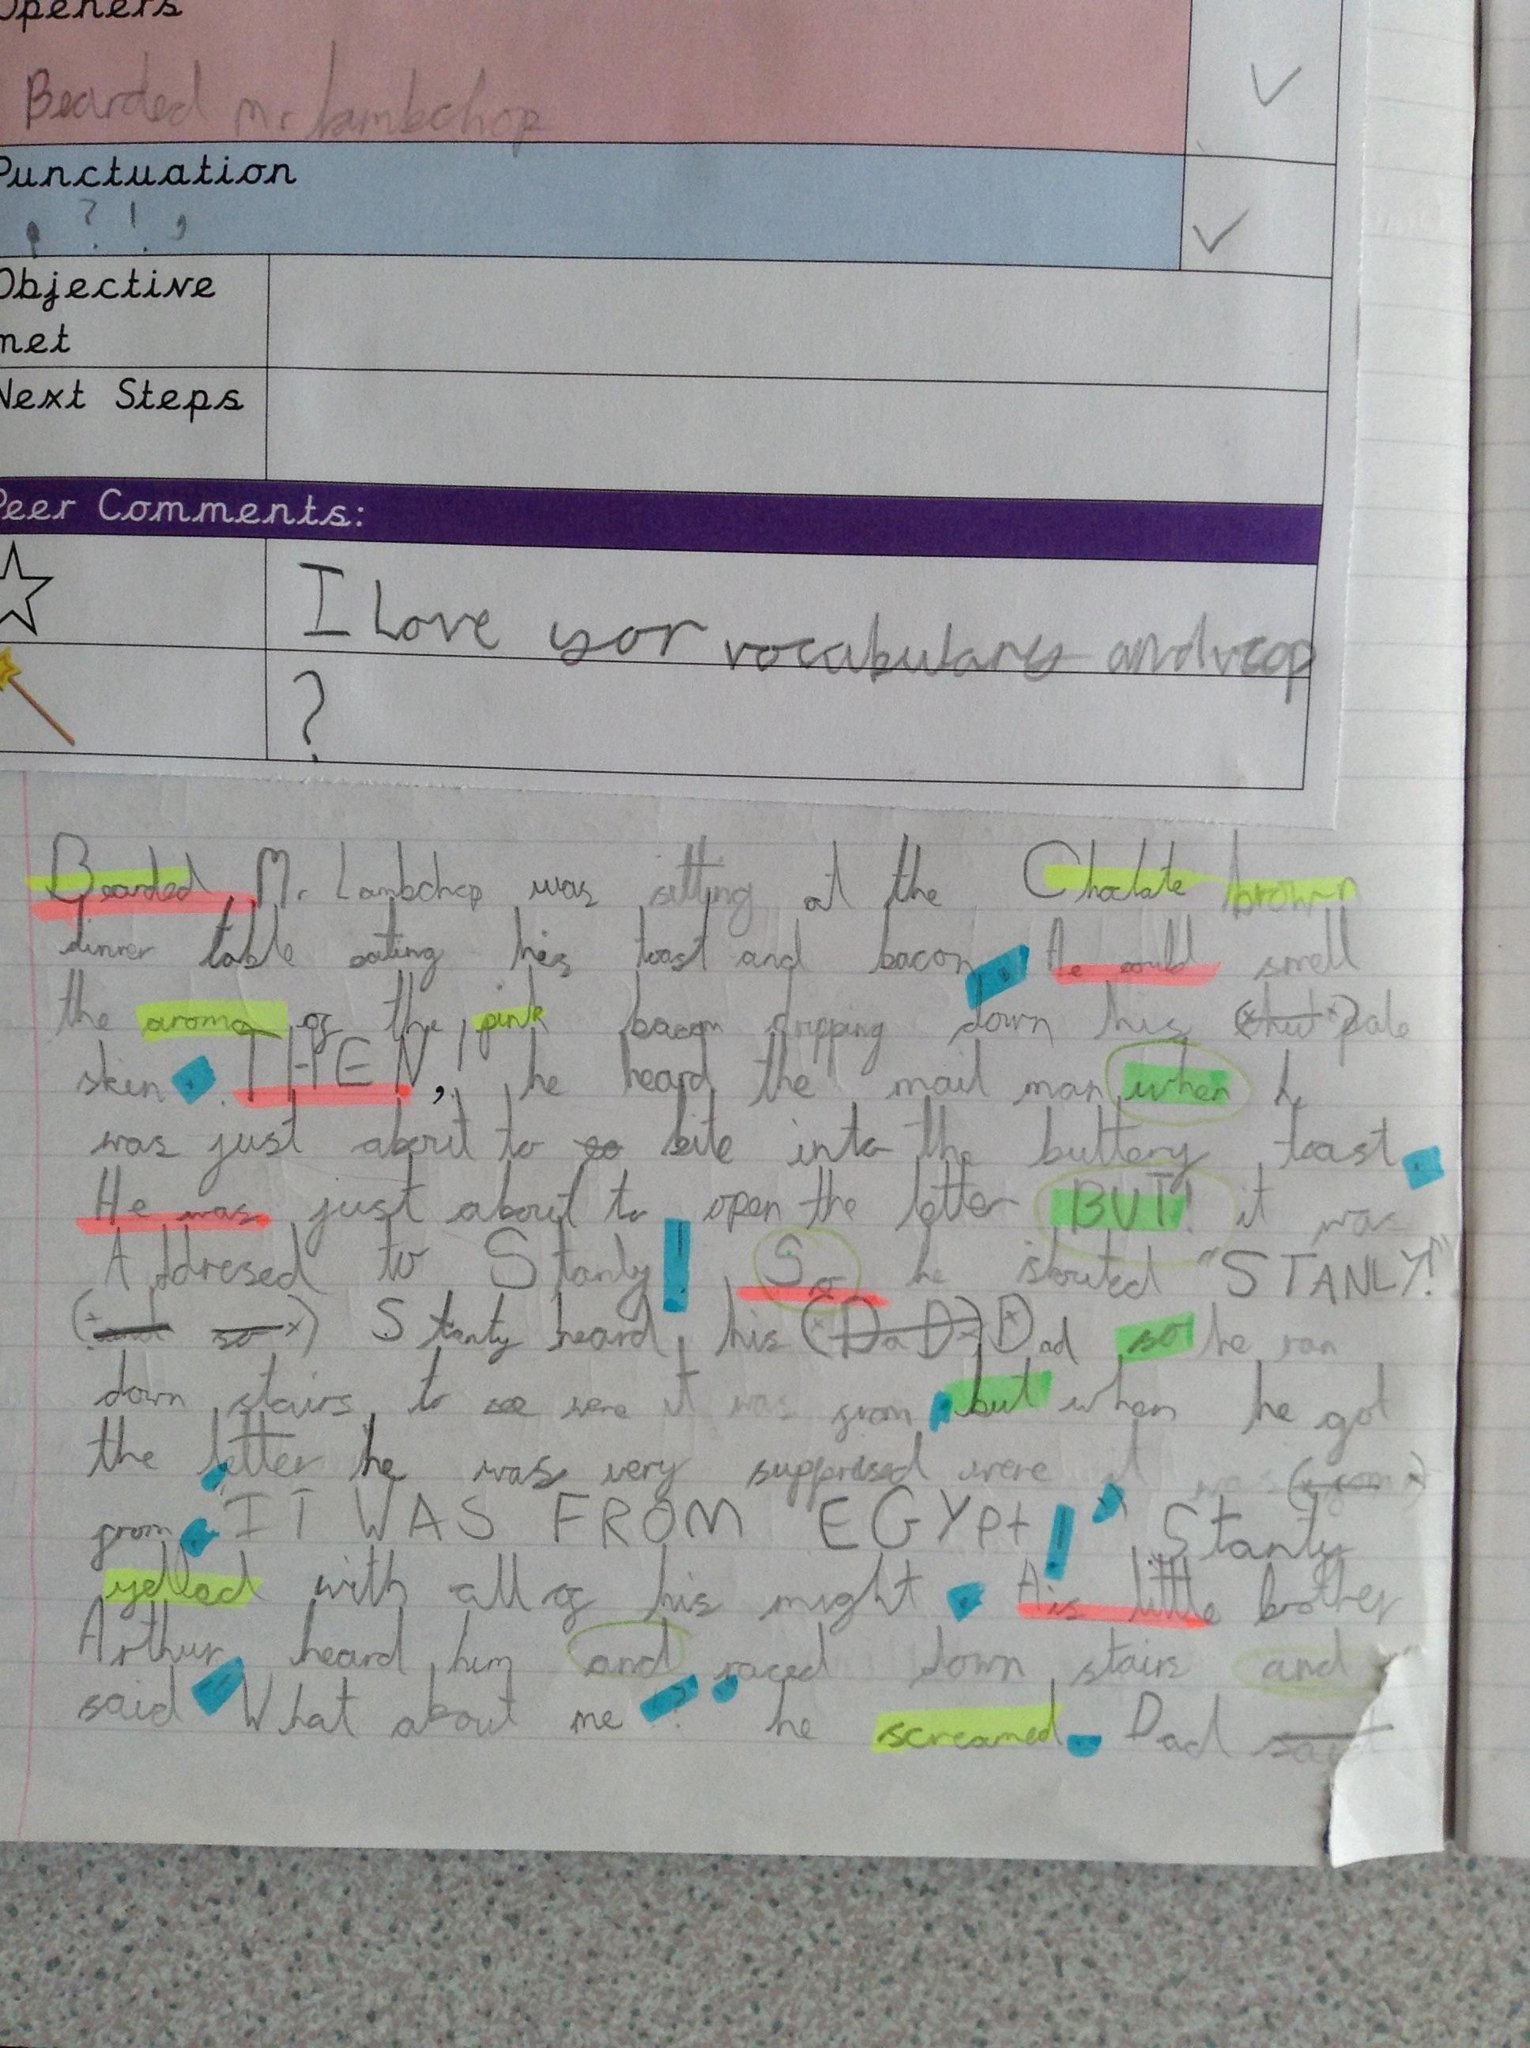 Openers
Bearded Mr lambchop
Punctuation
. ? ! ,
Objective
met
Next Steps
Peer Comments:
I Love yor vocabulary and vcop
?
Bearded Mr Lambchop was sitting at the Choclate brown
dinner table eating his toast and bacon. He could smell
the aroma of the pink bacon dripping down his pale
skin. THEN, he heard the mail man when h
was just about to so bite into the buttery toast.
He was just about to open the letter BUT! it was
Addresed to Stanly! So he shouted "STANLY!"
(and so) Stanly heard his (DaD) Dad so he ran
down stairs to see were it was from, but when he got
the letter, he was very supprised were it was (from)
from. "IT WAS FROM EGYPt!" Stanly
yelled with all of his might. His little brother
Arthur heard him and raced down stairs and
said "What about me?" he screamed. Dad said